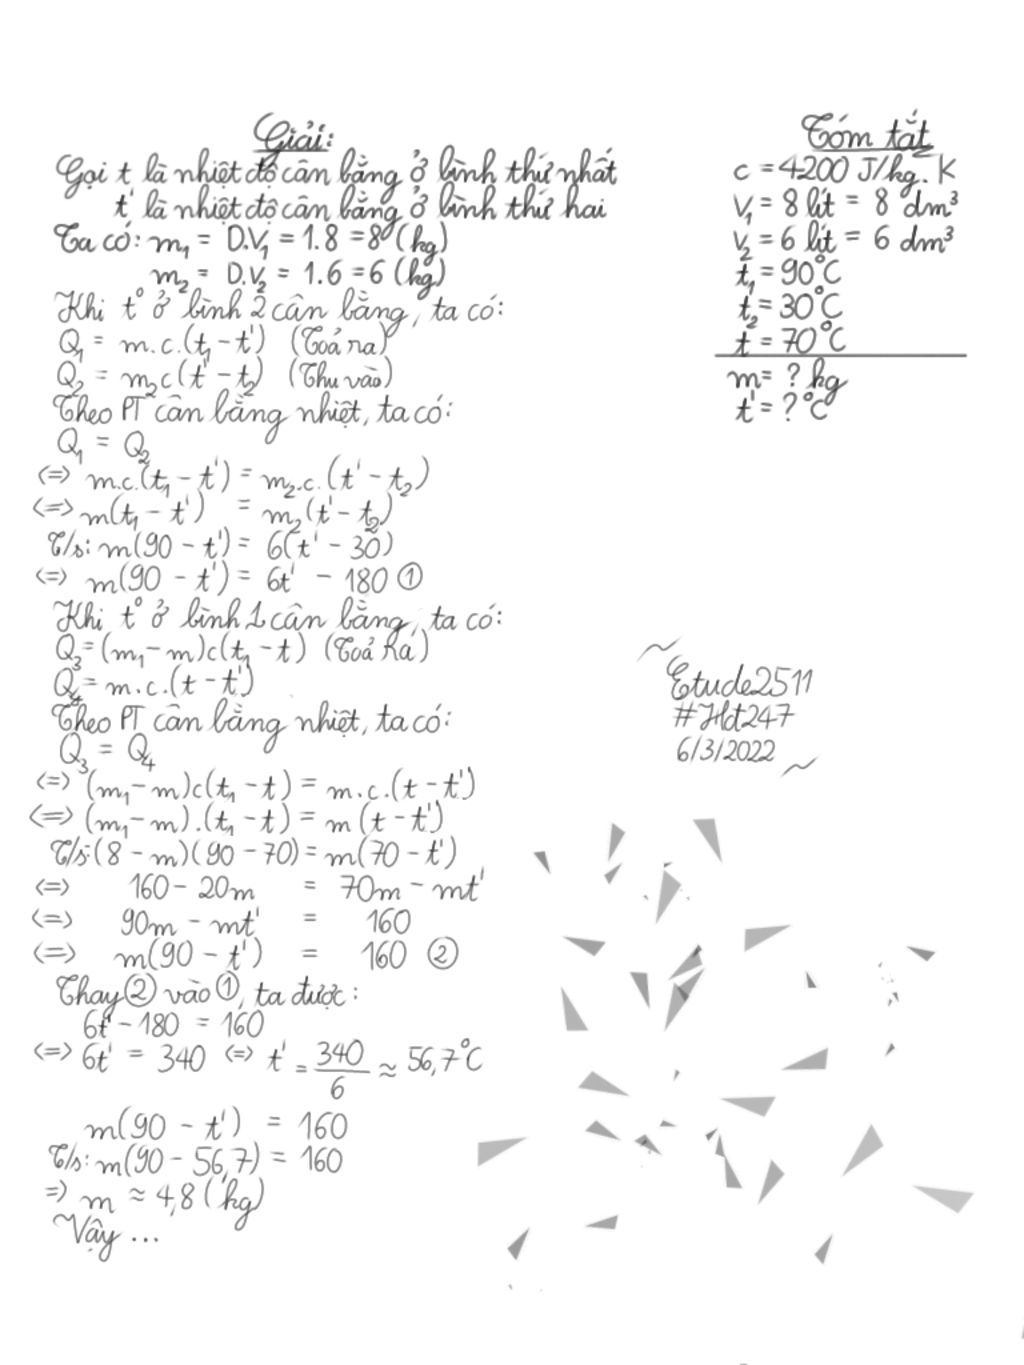 Giải:
Gọi t là nhiệt độ cân bằng ở bình thứ nhất
t' là nhiệt độ cân bằng ở bình thứ hai
Ta có: m₁ = D.V₁ = 1.8 = 8 (kg)
m₂ = D.V₂ = 1.6 = 6 (kg)
Khi t° ở bình 2 cân bằng, ta có:
Q₁ = m.c.(t₁ - t') (Toả ra)
Q₂ = m₂c(t' - t₂) (Thu vào)
Theo PT cân bằng nhiệt, ta có:
Q₁ = Q₂
<=> m.c.(t₁ - t') = m₂.c.(t' - t₂)
<=> m(t₁ - t') = m₂(t' - t₂)
T/s: m(90 - t') = 6(t' - 30)
<=> m(90 - t') = 6t' - 180 ①
Khi t° ở bình 1 cân bằng, ta có:
Q₃ = (m₁ - m)c(t₁ - t) (Toả Ra)
Q₄ = m.c.(t - t')
Theo PT cân bằng nhiệt, ta có:
Q₃ = Q₄
<=> (m₁ - m)c(t₁ - t) = m.c.(t - t')
<=> (m₁ - m).(t₁ - t) = m(t - t')
T/s: (8 - m)(90 - 70) = m(70 - t')
<=> 160 - 20m = 70m - mt'
<=> 90m - mt' = 160
<=> m(90 - t') = 160 ②
Thay ② vào ①, ta được:
6t' - 180 = 160
<=> 6t' = 340 <=> t' = 340/6 ≈ 56,7°C
m(90 - t') = 160
T/s: m(90 - 56,7) = 160
=> m ≈ 4,8 (kg)
Vậy ...
Tóm tắt
c = 4200 J/kg.K
V₁ = 8 lít = 8 dm³
V₂ = 6 lít = 6 dm³
t₁ = 90°C
t₂ = 30°C
t = 70°C
m = ? kg
t' = ? °C
~ Etude2511
#Hdt247
6/3/2022 ~